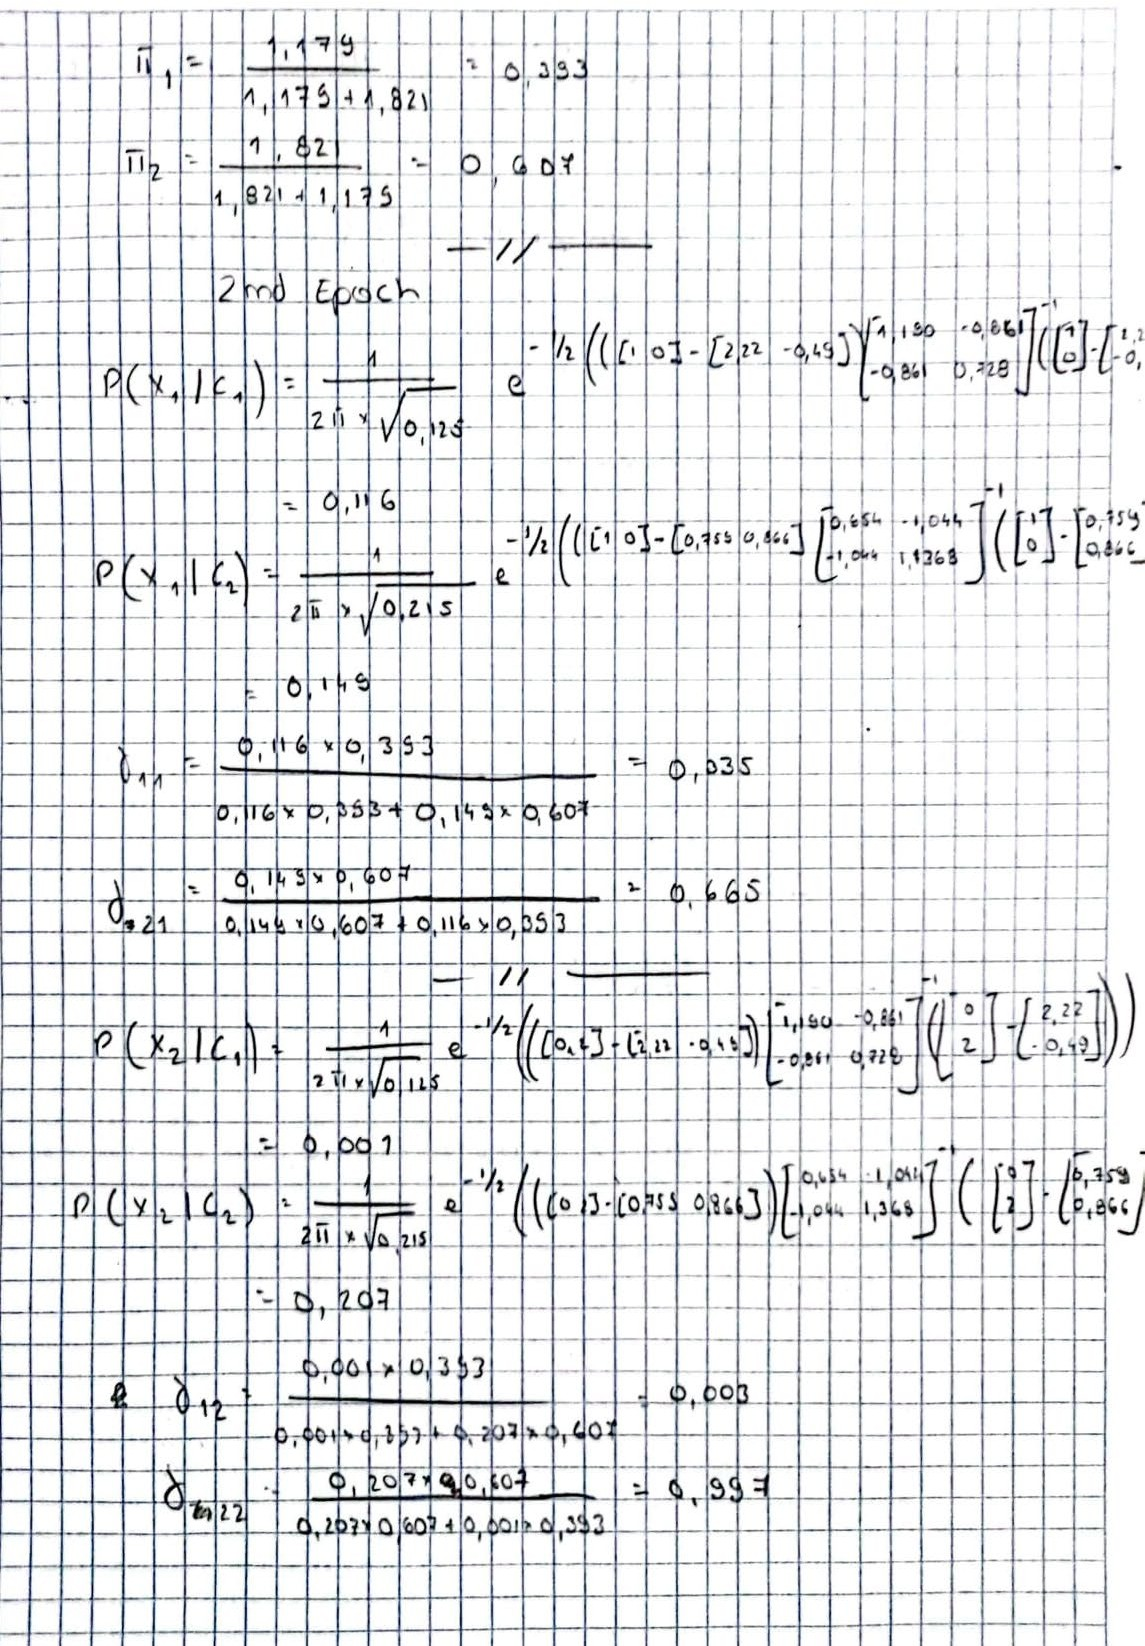 π₁ = 1,179 / (1,179 + 1,821) = 0,393
π₂ = 1,821 / (1,821 + 1,179) = 0,607
— // —
2nd Epoch
P(x₁ | c₁) = 1 / (2π × √0,125) e^ -1/2 (( [1 0] - [2,22 -0,49] ) [1,190 -0,861 ; -0,861 0,728]⁻¹ ( [1 ; 0] - [2,2 ; -0,
= 0,116
P(x₁ | c₂) = 1 / (2π × √0,215) e^ -1/2 (( [1 0] - [0,759 0,866] [0,654 -1,044 ; -1,044 1,1368]⁻¹ ( [1 ; 0] - [0,759 ; 0,866]
= 0,149
γ₁₁ = 0,116 × 0,393 / (0,116 × 0,393 + 0,149 × 0,607) = 0,335
γ₂₁ = 0,149 × 0,607 / (0,149 × 0,607 + 0,116 × 0,393) = 0,665
— // —
P(x₂ | c₁) = 1 / (2π × √0,125) e^ -1/2 (( [0 2] - [2,22 -0,49] ) [1,190 -0,861 ; -0,861 0,728]⁻¹ ( [0 ; 2] - [2,22 ; -0,49] )))
= 0,001
P(x₂ | c₂) = 1 / (2π × √0,215) e^ -1/2 (( [0 2] - [0,759 0,866] ) [0,654 -1,044 ; -1,044 1,368]⁻¹ ( [0 ; 2] - [0,759 ; 0,866]
= 0,207
γ₁₂ = 0,001 × 0,393 / (0,001 × 0,393 + 0,207 × 0,607) = 0,003
γ₂₂ = 0,207 × 0,607 / (0,207 × 0,607 + 0,001 × 0,393) = 0,997